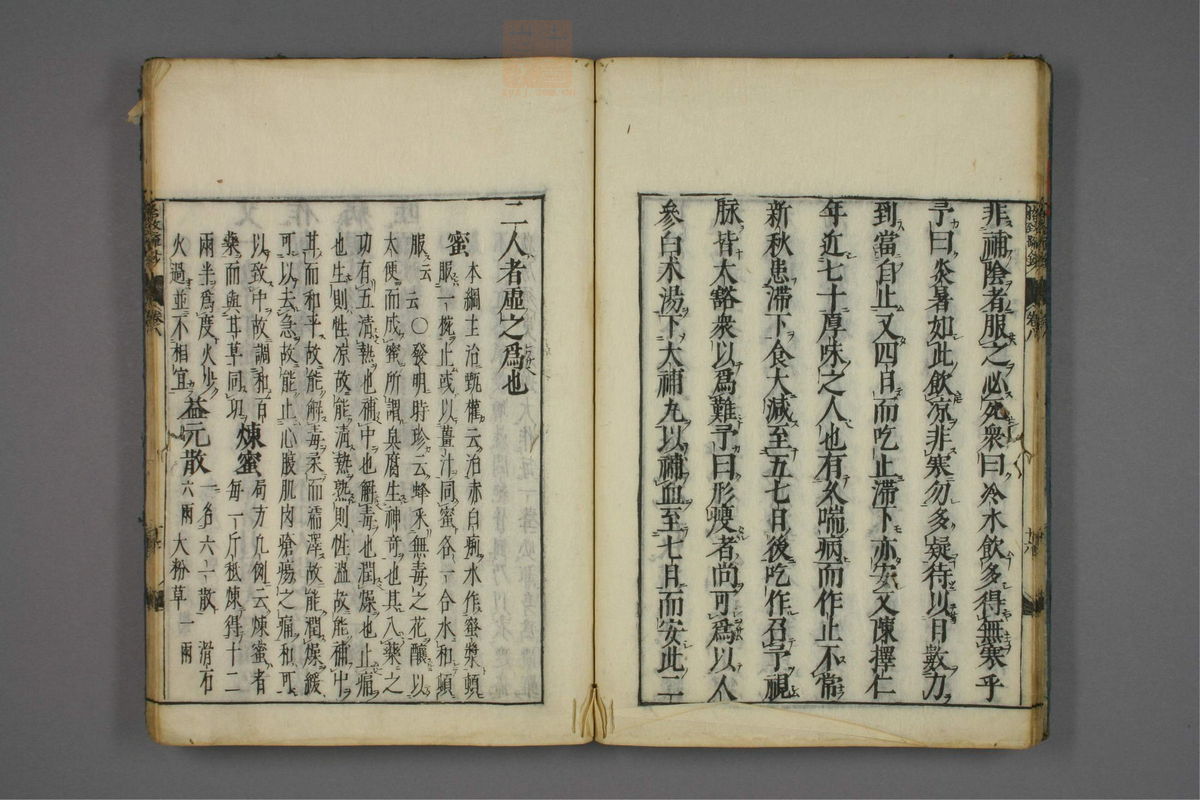 非補陰者服之必死衆曰冷水飲多得無寒乎
予曰炎暑如此飲凉非寒勿多疑待以日數力
到當自止又四日而吃止滯下亦安又陳擇仁
年近七十厚味之人也有久喘病而作止不常
新秋患滯下食大減至五七日後吃作召予視
脉皆大豁衆以爲難予曰形瘦者尚可爲以人
參白朮湯下大補丸以補血至七日而安此二
二人者虛之爲也
蜜 本綱主治甄權云治赤白痢水作蜜漿頓
服一椀止或以薑汁同蜜各一合水和頓
服云云〇發明時珍云蜂采無毒之花釀以
大便而成蜜所謂臭腐生神奇也其入藥之
功有五清熱也補中也解毒也潤燥也止痛
也生則性凉故能清熱熟則性溫故能補中
甘而和平故能解毒柔而濡澤故能潤燥緩
可以去急故能止心腹肌肉瘡瘍之痛和可
以致中故調和百 煉蜜 局方凡例云煉蜜者
藥而與甘草同功 每一斤秪煉得十二
兩半爲度火少
火過並不相宜 益元散 一名六一散 滑石
六兩 大粉草 一兩
卷八
卷八
十六